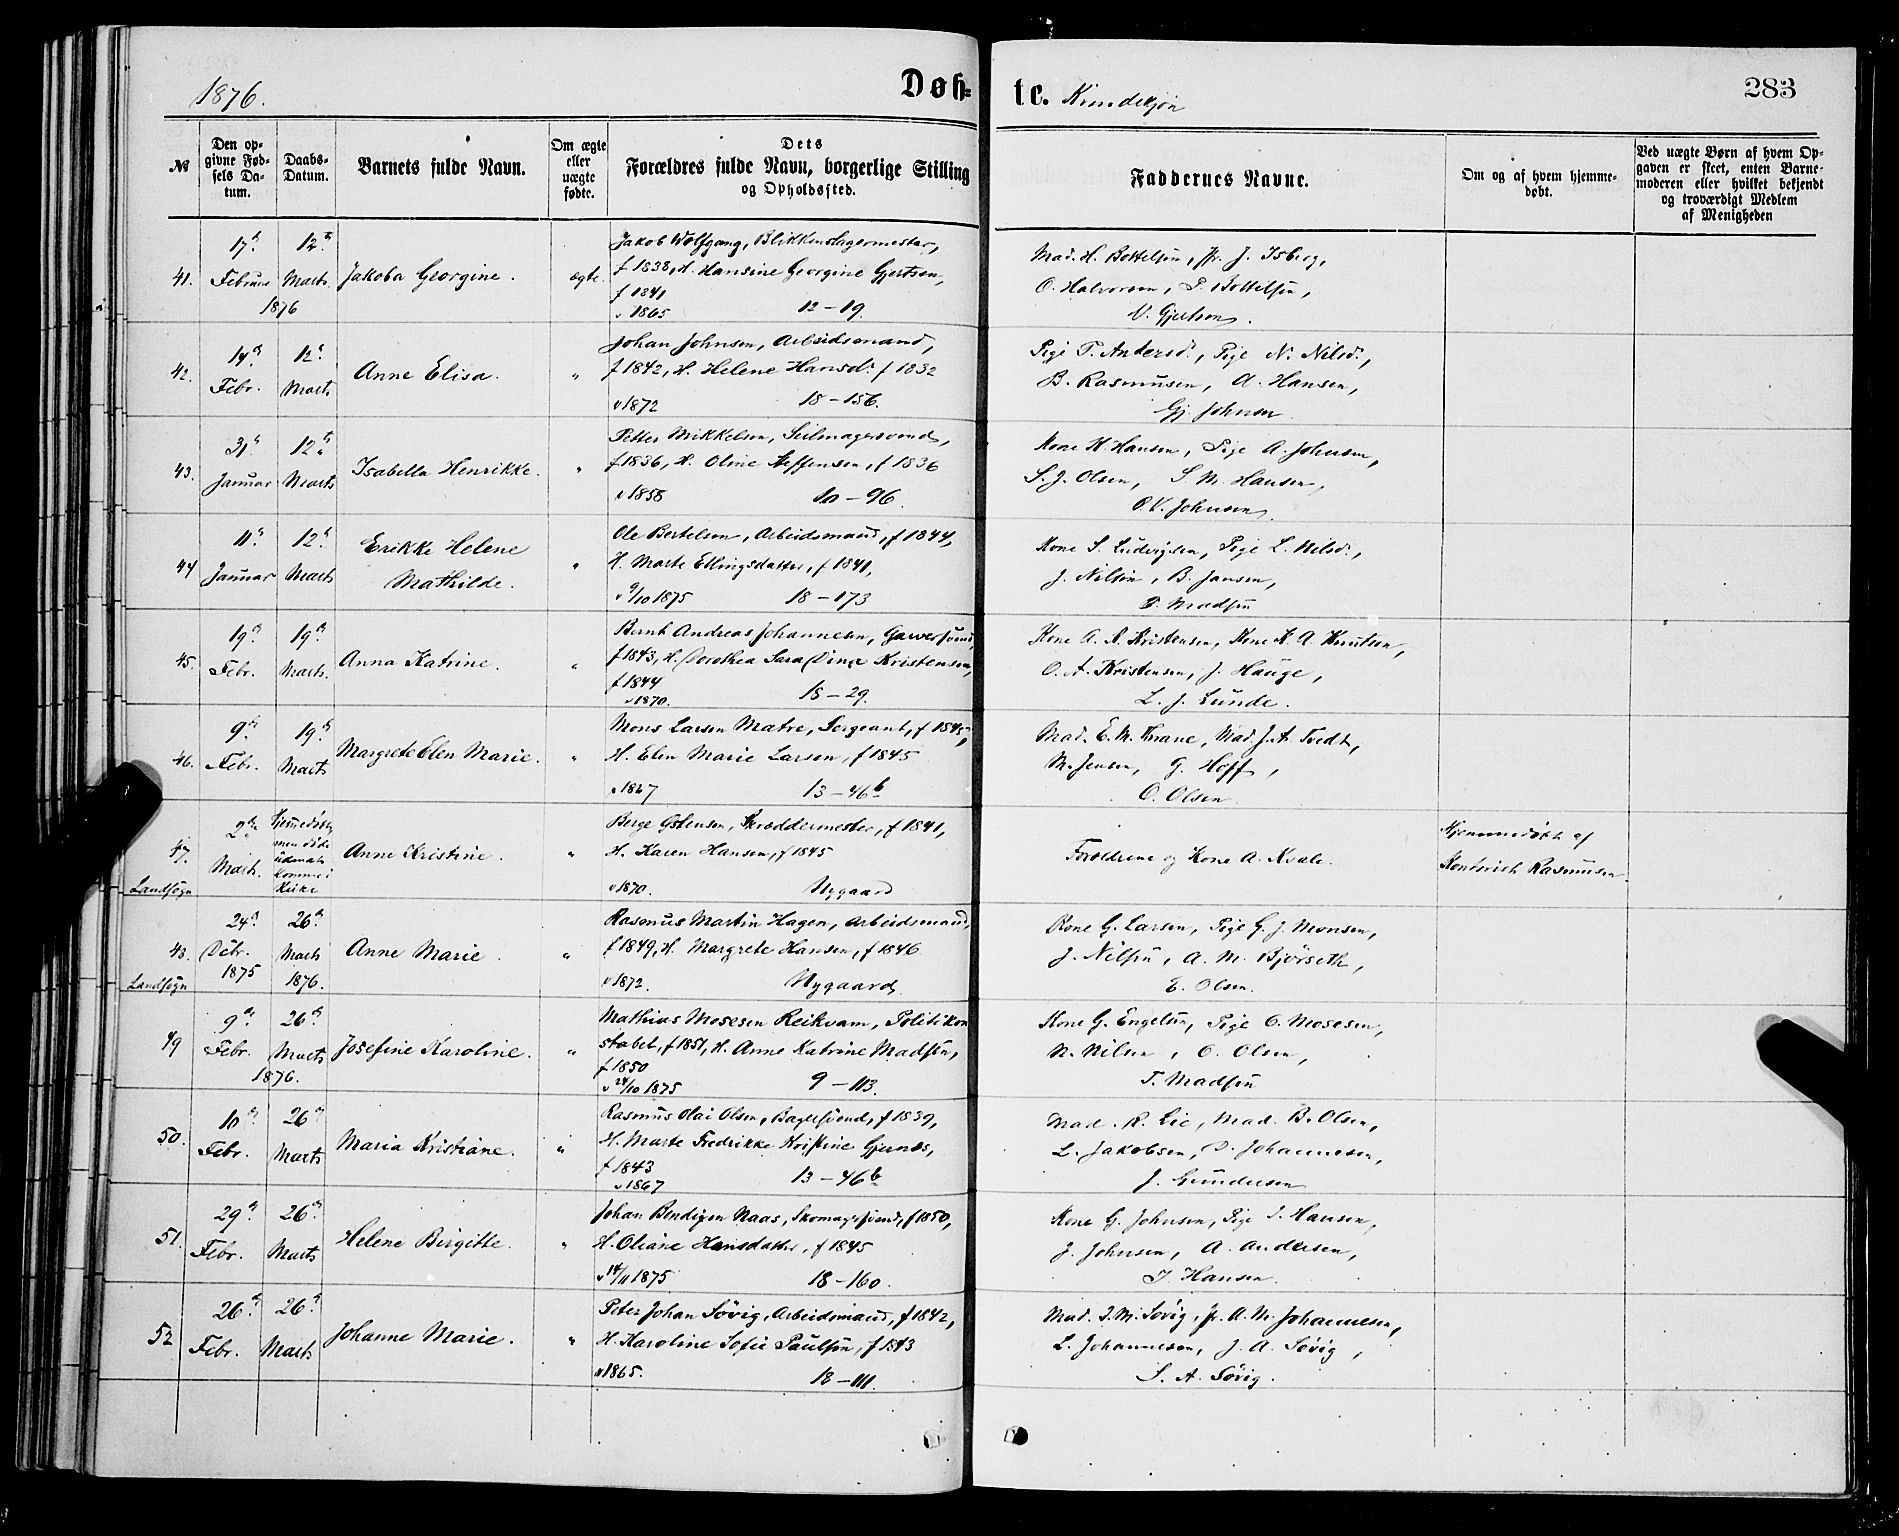 1876.
Døb-
te. Kvindekjøn
283
№
Den opgivne Fødsels Datum.
Daabs-Datum.
Barnets fulde Navn.
Om ægte eller uægte fødte.
Dets Forældres fulde Navn, borgerlige Stilling og Opholdssted.
Faddernes Navne.
Om og af hvem hjemmedøbt.
Ved uægte Børn af hvem Opgaven er skeet, enten Barnemoderen eller hvilket bekjendt og troværdigt Medlem af Menigheden
41. 17de Februar 12te Marts 1876 Jakoba Georgine. ægte.
Jakob Wolfgang, Blikkenslagermester,
f 1838, H. Hansine Georgine Gjertsen,
f 1841
v 1865 12-19.
Mad. H. Bottelsen, Jfr. J. Isberg,
O. Halvorsen, P. Bottelsen,
N. Gjertsen.
42. 14de Febr. 12te Marts Anne Elisa. "
Johan Johnsen, Arbeidsmand,
f 1842, H. Helene Hansdr. f 1832
v 1872 18-156.
Pige T. Andersdr., Pige N. Nilsdr.,
B. Rasmusen, A. Hansen,
Gj. Johnsen.
43. 31te Januar 12te Marts Isabella Henrikke. "
Petter Mikkelsen, Seilmagersvend,
f 1836, H. Oline Steffensen, f 1836
v 1858 10-96.
Kone H. Hansen, Pige A. Johnsen,
S. J. Olsen, S. M. Hansen,
O. V. Johnsen.
44 11te Januar 12te Marts Erikke Helene Mathilde. "
Ole Bertelsen, Arbeidsmand, f 1844,
H. Marte Ellingsdatter, f 1841,
v 9/10 1875 18-173
Kone S. Ludvigsen, Pige L. Nilsdr.,
J. Nilsen, B. Jansen,
P. Madsen
45. 19de Febr. 19de Marts. Anna Katrine. "
Bernt Andreas Johannesen, Garversvend,
f 1843, H. Dorothea Sara Dina Kristensen,
f 1844
v 1870. 18-29.
Kone A. A. Kristensen, Kone K. A. Knutsen,
O. A. Kristensen, J. Hauge,
L. J. Lunde.
46. 9de Febr. 19de Marts Margrete Elen Marie. "
Mons Larsen Matre, Sergeant, f 1845,
H. Elen Marie Larsen, f 1845
v 1867 13-46b
Mad. E. M. Krane, Mad. J. A. Tvedt,
M. Jensen, G. Hoff,
O. Olsen
47. Landsogn 2den Marts. Hjemmedøbt, men døde udenat komme i Kirke Anne Kristine. "
Berge Østensen, Skræddermester, f 1841,
H. Karen Hansen, f 1845
v 1870. Nygaard
Forældrene og Kone A. Kvale.
Hjemmedøbt af
Rasmusen.
48. Landsogn 24de Debr. 1875 26de Marts 1876. Anne Marie. "
Rasmus Martin Hagen, Arbeidsmand,
f 1849, H. Margrete Hansen, f 1846
v 1872. Nygaard.
Kone G. Larsen, Pige G. J. Monsen,
J. Nilsen, A. M. Bjørseth,
E. Olsen.
49 9de Febr. 26de Marts 1876. Josefine Karoline. "
Mathias Mosesen Reikvam, Politikon
stabel, f 1851, H. Anne Katrine Madsen,
f 1850
v 24/10 1875 9-113.
Kone G. Engelsen, Pige O. Mosesen,
N. Nilsen, O. Olsen,
T. Madsen
50. 10de Febr. 26de Marts Maria Kristiane. "
Rasmus Olai Olsen, Bagersvend, f 1839,
H. Marte Fredrikke Kristine Gjernes,
f 1843
v 1867 13-46b
Mad. R. Lie, Mad. B. Olsen,
L. Jakobsen, D. Johannesen,
J. Gundersen
51. 29de Febr. 26de Marts Helene Birgitte. "
Johan Bendigsen Naas, Skomagersvend, f 1850,
H. Oliane Hansdatter, f 1845
v 14/11 1875 18-160.
Kone G. Johnsen, Pige I. Hansen,
J. Johnsen, A. Andersen,
I. Hansen.
52 26de Febr. 26de Marts Johanne Marie. "
Peter Johan Søvig, Arbeidsmand, f 1842,
H. Karoline Sofie Paulsen, f 1843
v 1865. 18-111.
Mad. I. M. Søvig, Jfr. A. M. Johannesen,
L. Johannesen, J. A. Søvig,
S. A. Søvig.